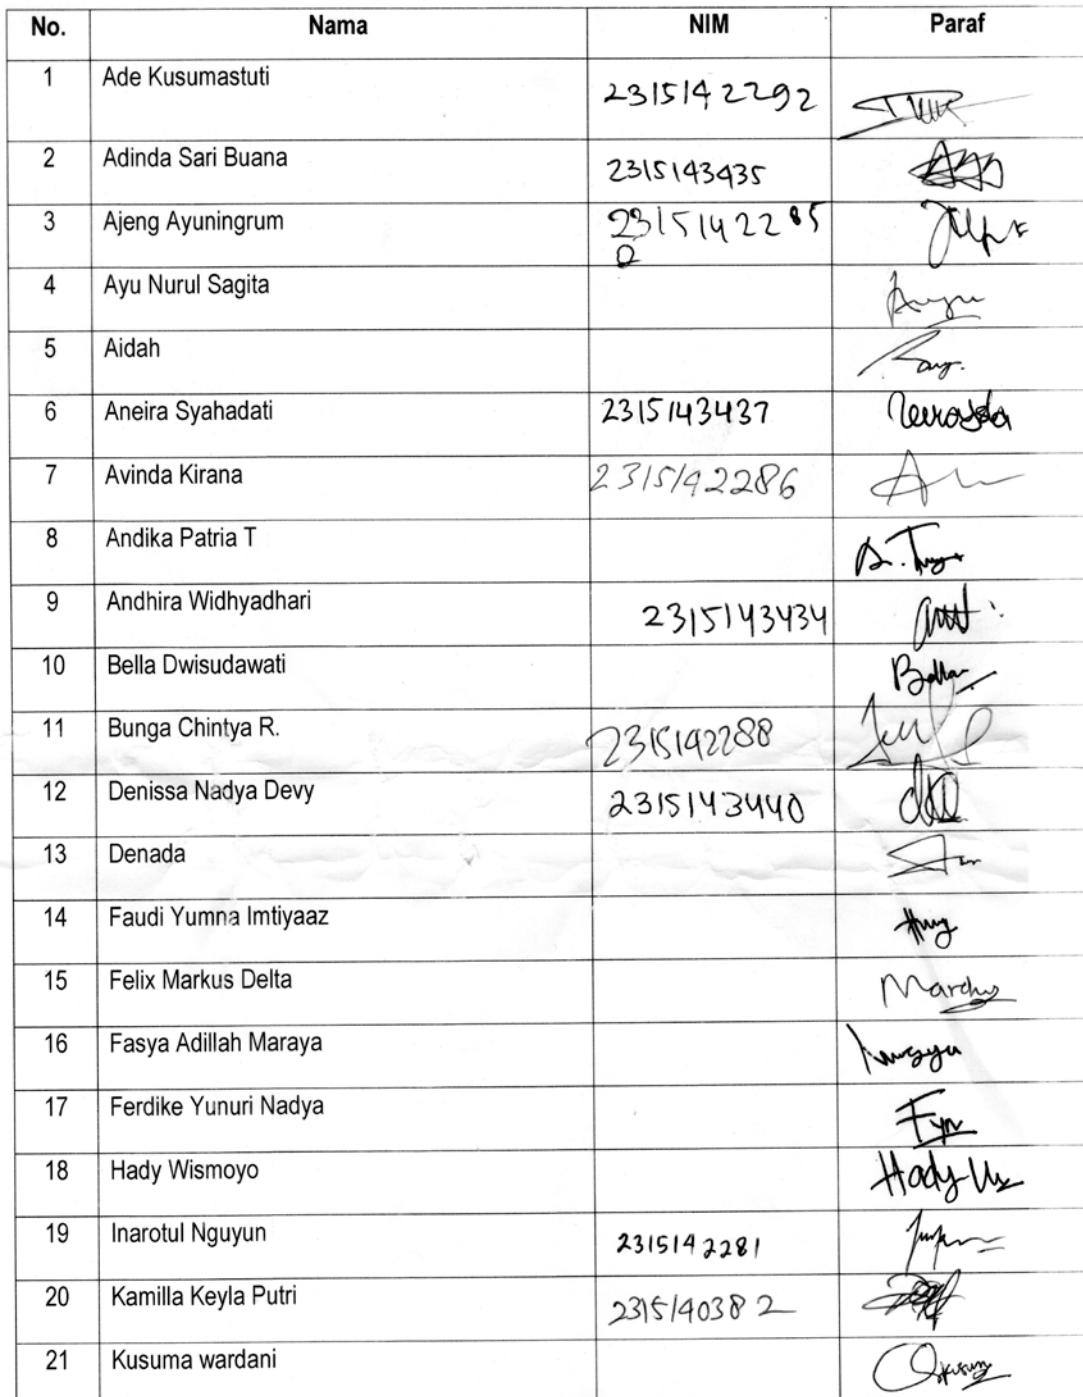 No. Nama NIM Paraf
1 Ade Kusumastuti 2315142292
2 Adinda Sari Buana 2315143435
3 Ajeng Ayuningrum 2315142285
4 Ayu Nurul Sagita
5 Aidah
6 Aneira Syahadati 2315143437
7 Avinda Kirana 2315142286
8 Andika Patria T
9 Andhira Widhyadhari 2315143434
10 Bella Dwisudawati Bella
11 Bunga Chintya R. 2315142288
12 Denissa Nadya Devy 2315143440
13 Denada
14 Faudi Yumna Imtiyaaz
15 Felix Markus Delta
16 Fasya Adillah Maraya
17 Ferdike Yunuri Nadya Fyn
18 Hady Wismoyo Hady
19 Inarotul Nguyun 2315142281
20 Kamilla Keyla Putri 2315140382
21 Kusuma wardani